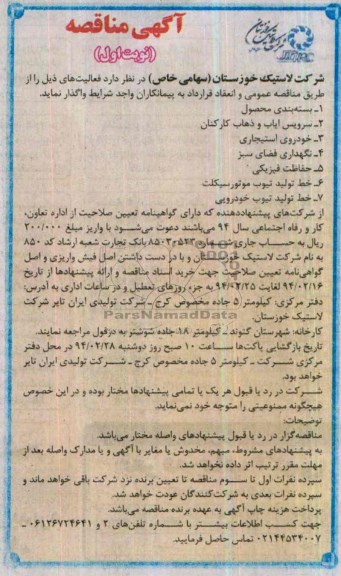 آگهی مناقصه
(نوبت اول)
شرکت لاستیک خوزستان (سهامی خاص) در نظر دارد فعالیت‌های ذیل را از
طریق مناقصه عمومی و انعقاد قرارداد به پیمانکاران واجد شرایط واگذار نماید.
۱ـ بسته‌بندی محصول
۲ـ سرویس ایاب و ذهاب کارکنان
۳ـ خودروی استیجاری
۴ـ نگهداری فضای سبز
۵ـ حفاظت فیزیکی
۶ـ خط تولید تیوب موتورسیکلت
۷ـ خط تولید تیوب خودرویی
از شرکت‌های پیشنهاددهنده که دارای گواهینامه تعیین صلاحیت از اداره تعاون،
کار و رفاه اجتماعی سال ۹۴ می‌باشند دعوت می‌شود با واریز مبلغ ۲۰۰/۰۰۰
ریال به حساب جاری شماره بانک تجارت شعبه ارشاد کد ۸۵۰
به نام شرکت لاستیک خوزستان و با در دست داشتن اصل فیش واریزی و اصل
گواهی‌نامه تعیین صلاحیت جهت خرید اسناد مناقصه و ارائه پیشنهادها از تاریخ
۹۴/۰۲/۱۶ لغایت ۹۴/۰۲/۲۵ به جزء روزهای تعطیل و در ساعات اداری به آدرس:
دفتر مرکزی: کیلومتر ۵ جاده مخصوص کرج ـ شرکت تولیدی ایران تایر شرکت
لاستیک خوزستان
ParsNamadData
کارخانه: شهرستان گتوند ـ کیلومتر ۱۸ جاده شوشتر به دزفول مراجعه نمایند.
تاریخ بازگشایی پاکت‌ها ساعت ۱۰ صبح روز دوشنبه ۹۴/۰۲/۲۸ در محل دفتر
مرکزی شرکت ـ کیلومتر ۵ جاده مخصوص کرج ـ شرکت تولیدی ایران تایر
خواهد بود.
شرکت در رد یا قبول هر یک یا تمامی پیشنهادها مختار بوده و در این خصوص
هیچگونه ممنوعیتی را متوجه خود نمی‌نماید.
توضیحات:
مناقصه‌گزار در رد یا قبول پیشنهادهای واصله مختار می‌باشد.
به پیشنهادهای مشروط، مبهم، مخدوش یا مغایر با آگهی و یا مدارک واصله بعد از
مهلت مقرر ترتیب اثر داده نخواهد شد.
سپرده نفرات اول تا سوم مناقصه تا تعیین برنده نزد شرکت باقی خواهد ماند و
سپرده نفرات بعدی به شرکت‌کنندگان عودت خواهد شد.
پرداخت هزینه چاپ آگهی به عهده برنده مناقصه می‌باشد.
جهت کسب اطلاعات بیشتر با شماره تلفن‌های ۲ و ۰۶۱۲۶۷۲۴۶۴۱ ـ
۰۲۱۴۴۵۳۴۰۰۷ تماس حاصل فرمایید.